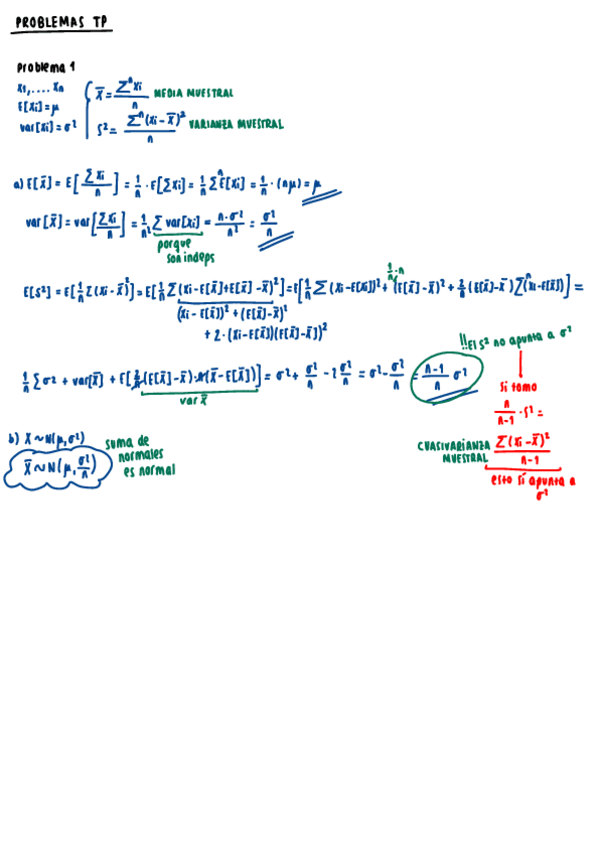 PROBLEMAS TP
Problema 1
x1, .... xn
E[xi] = μ
var[xi] = σ²
x̄ = Σⁿxi / n MEDIA MUESTRAL
s² = Σⁿ(xi - x̄)² / n VARIANZA MUESTRAL
a) E[x̄] = E[Σxi / n] = 1/n · E[Σxi] = 1/n Σⁿ E[xi] = 1/n · (nμ) = μ
var[x̄] = var[Σxi / n] = 1/n² Σ var[xi] = n·σ² / n² = σ² / n
porque
son indeps
E[s²] = E[1/n Σ(xi - x̄)²] = E[1/n Σ(xi - E[x̄] + E[x̄] - x̄)²] = E[1/n Σ(xi - E[xi])² + 1/n·n (E[x̄] - x̄)² + 2/n (E[x̄] - x̄) Σⁿ(xi - E[x̄])] =
(xi - E[x̄])² + (E[x̄] - x̄)²
+ 2·(xi - E[x̄])(E[x̄] - x̄)]²
!!El s² no apunta a σ²
1/n Σσ² + var[x̄] + E[2/n (E[x̄] - x̄)·n(x̄ - E[x̄])] = σ² + σ²/n - 2 σ²/n = σ² - σ²/n = n-1 / n σ²
var x̄
Si tomo
n / n-1 · s² =
CUASIVARIANZA MUESTRAL Σ(xi - x̄)² / n-1
esto sí apunta a
σ²
b) X ~ N(μ, σ²)
x̄ ~ N(μ, σ²/n)
suma de
normales
es normal